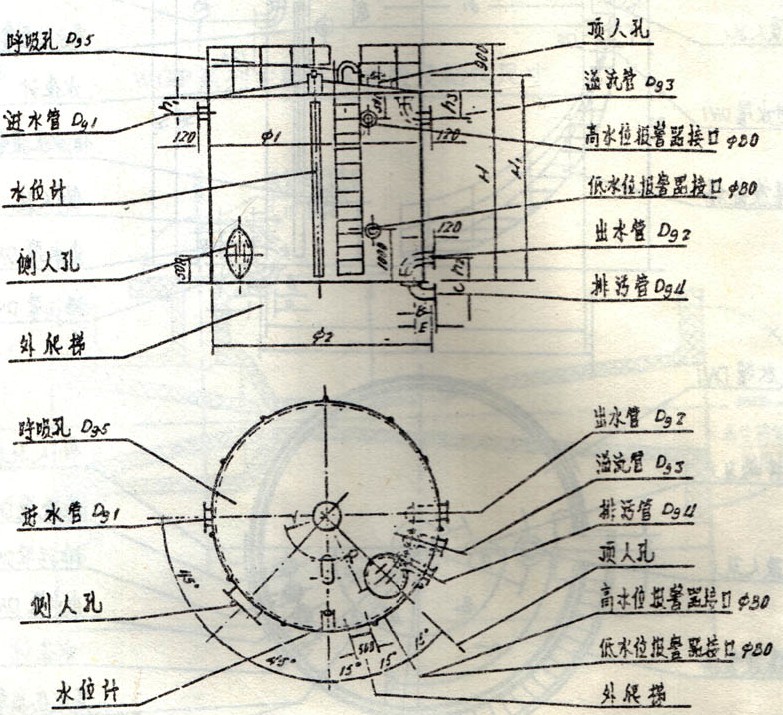 呼吸孔 Dg5
进水管 Dg1
水位计
侧人孔
外爬梯
顶人孔
溢流管 Dg3
高水位报警器接口 φ80
低水位报警器接口 φ80
出水管 Dg2
排污管 Dg4
900
h1
120
φ1
h3
120
H
H1
120
1000
h2
C
500
B
E
φ2
呼吸孔 Dg5
进水管 Dg1
侧人孔
水位计
出水管 Dg2
溢流管 Dg3
排污管 Dg4
顶人孔
高水位报警器接口 φ80
低水位报警器接口 φ80
外爬梯
45°
45°
15°
15°
15°